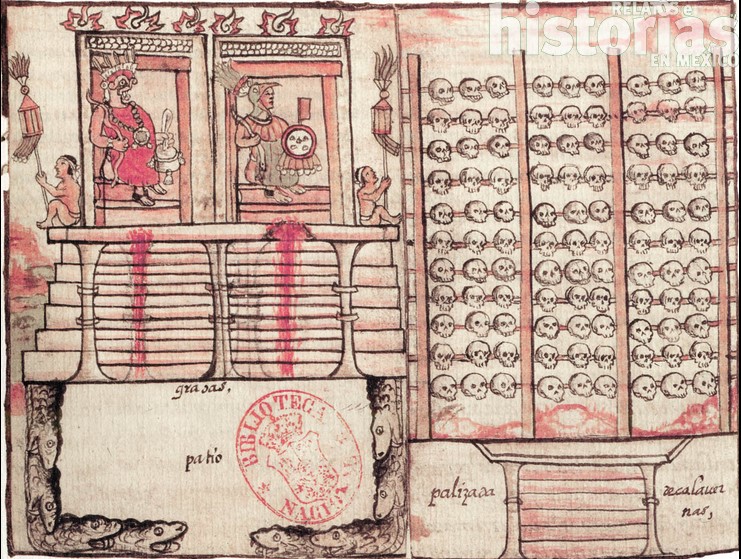 RELATOS e
historias
EN MÉXICO
gradas,
patio
BIBLIOTECA
NACI
palizada
de calaver
nas,